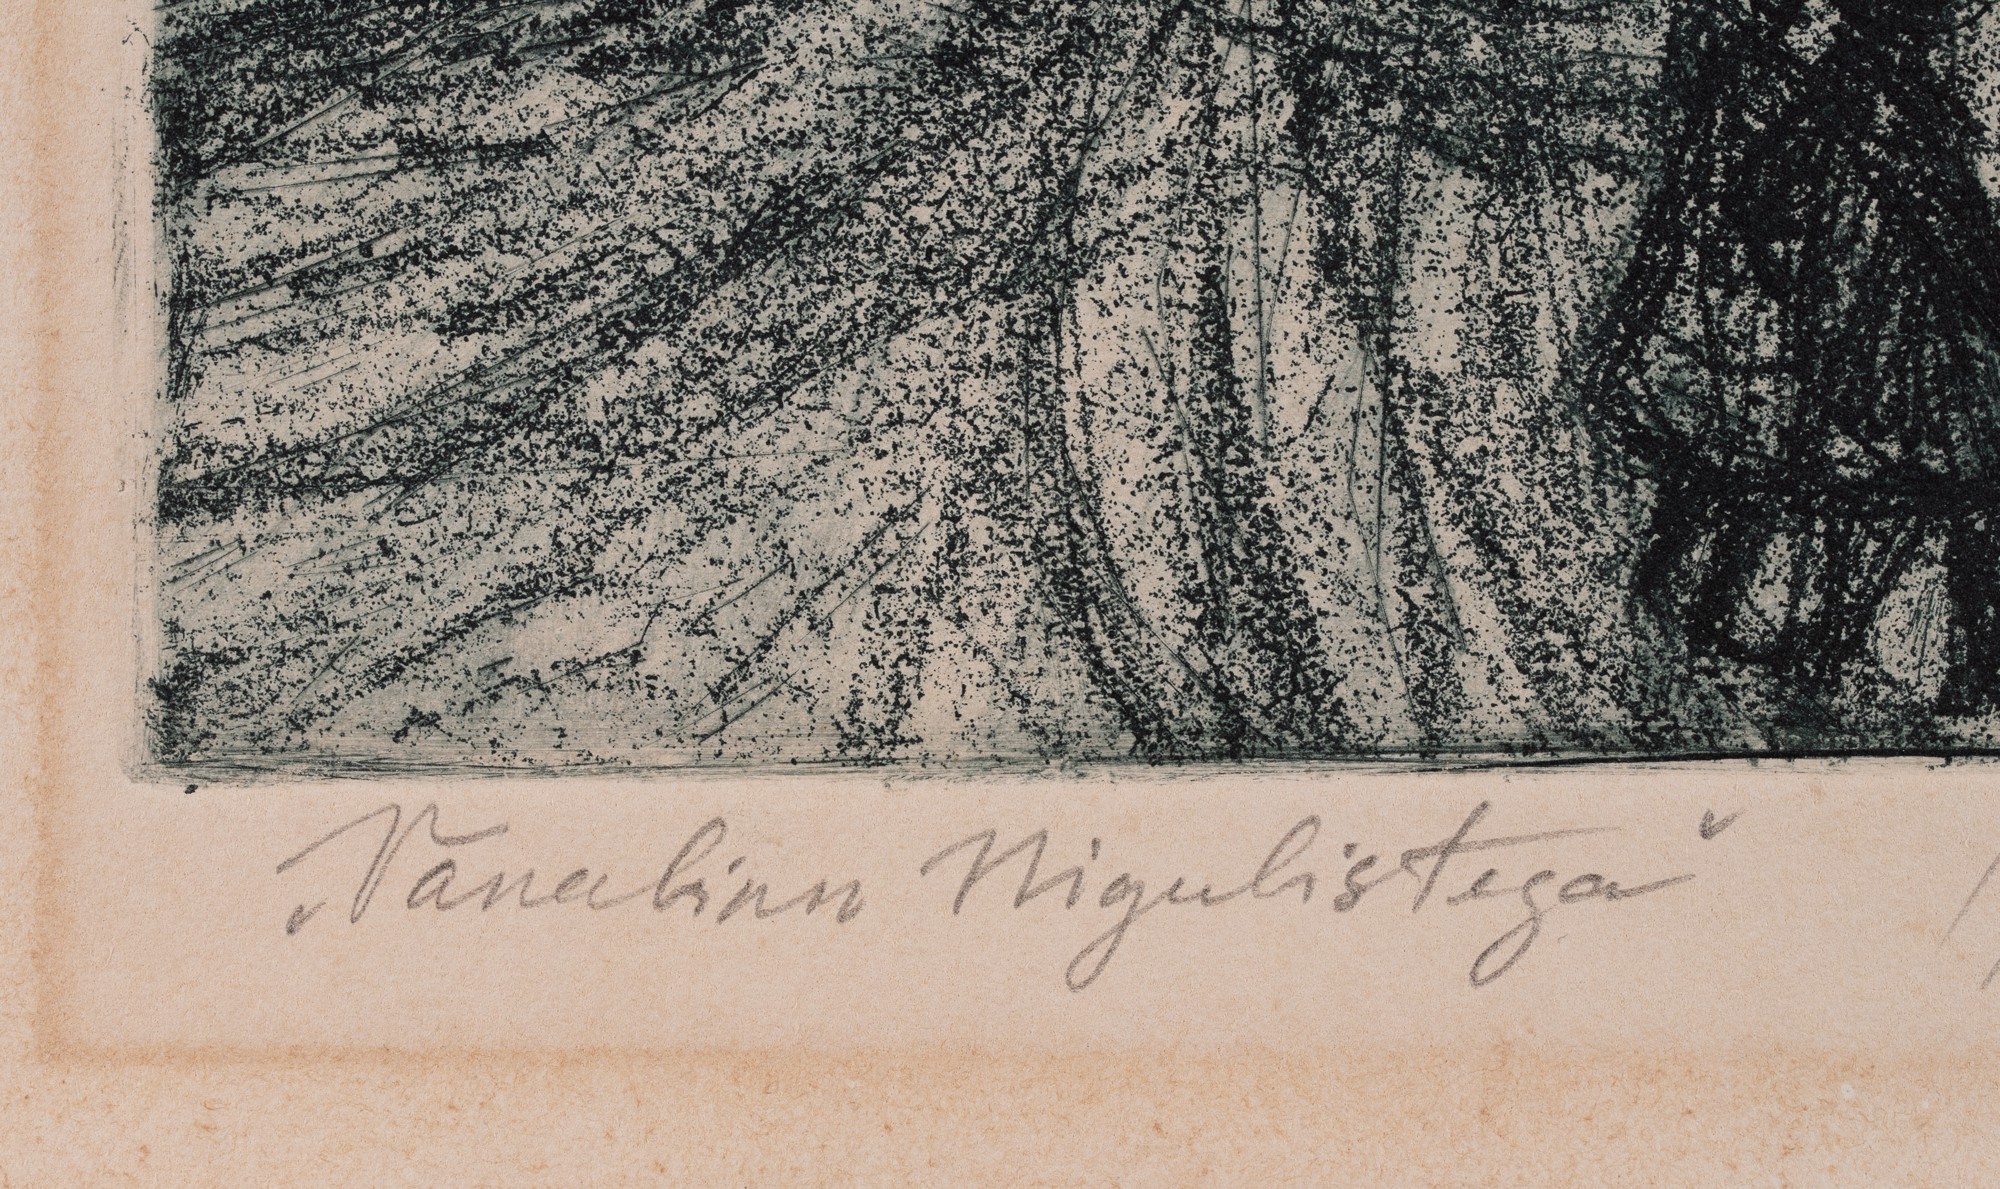 „Vanalinn Nigulistega"